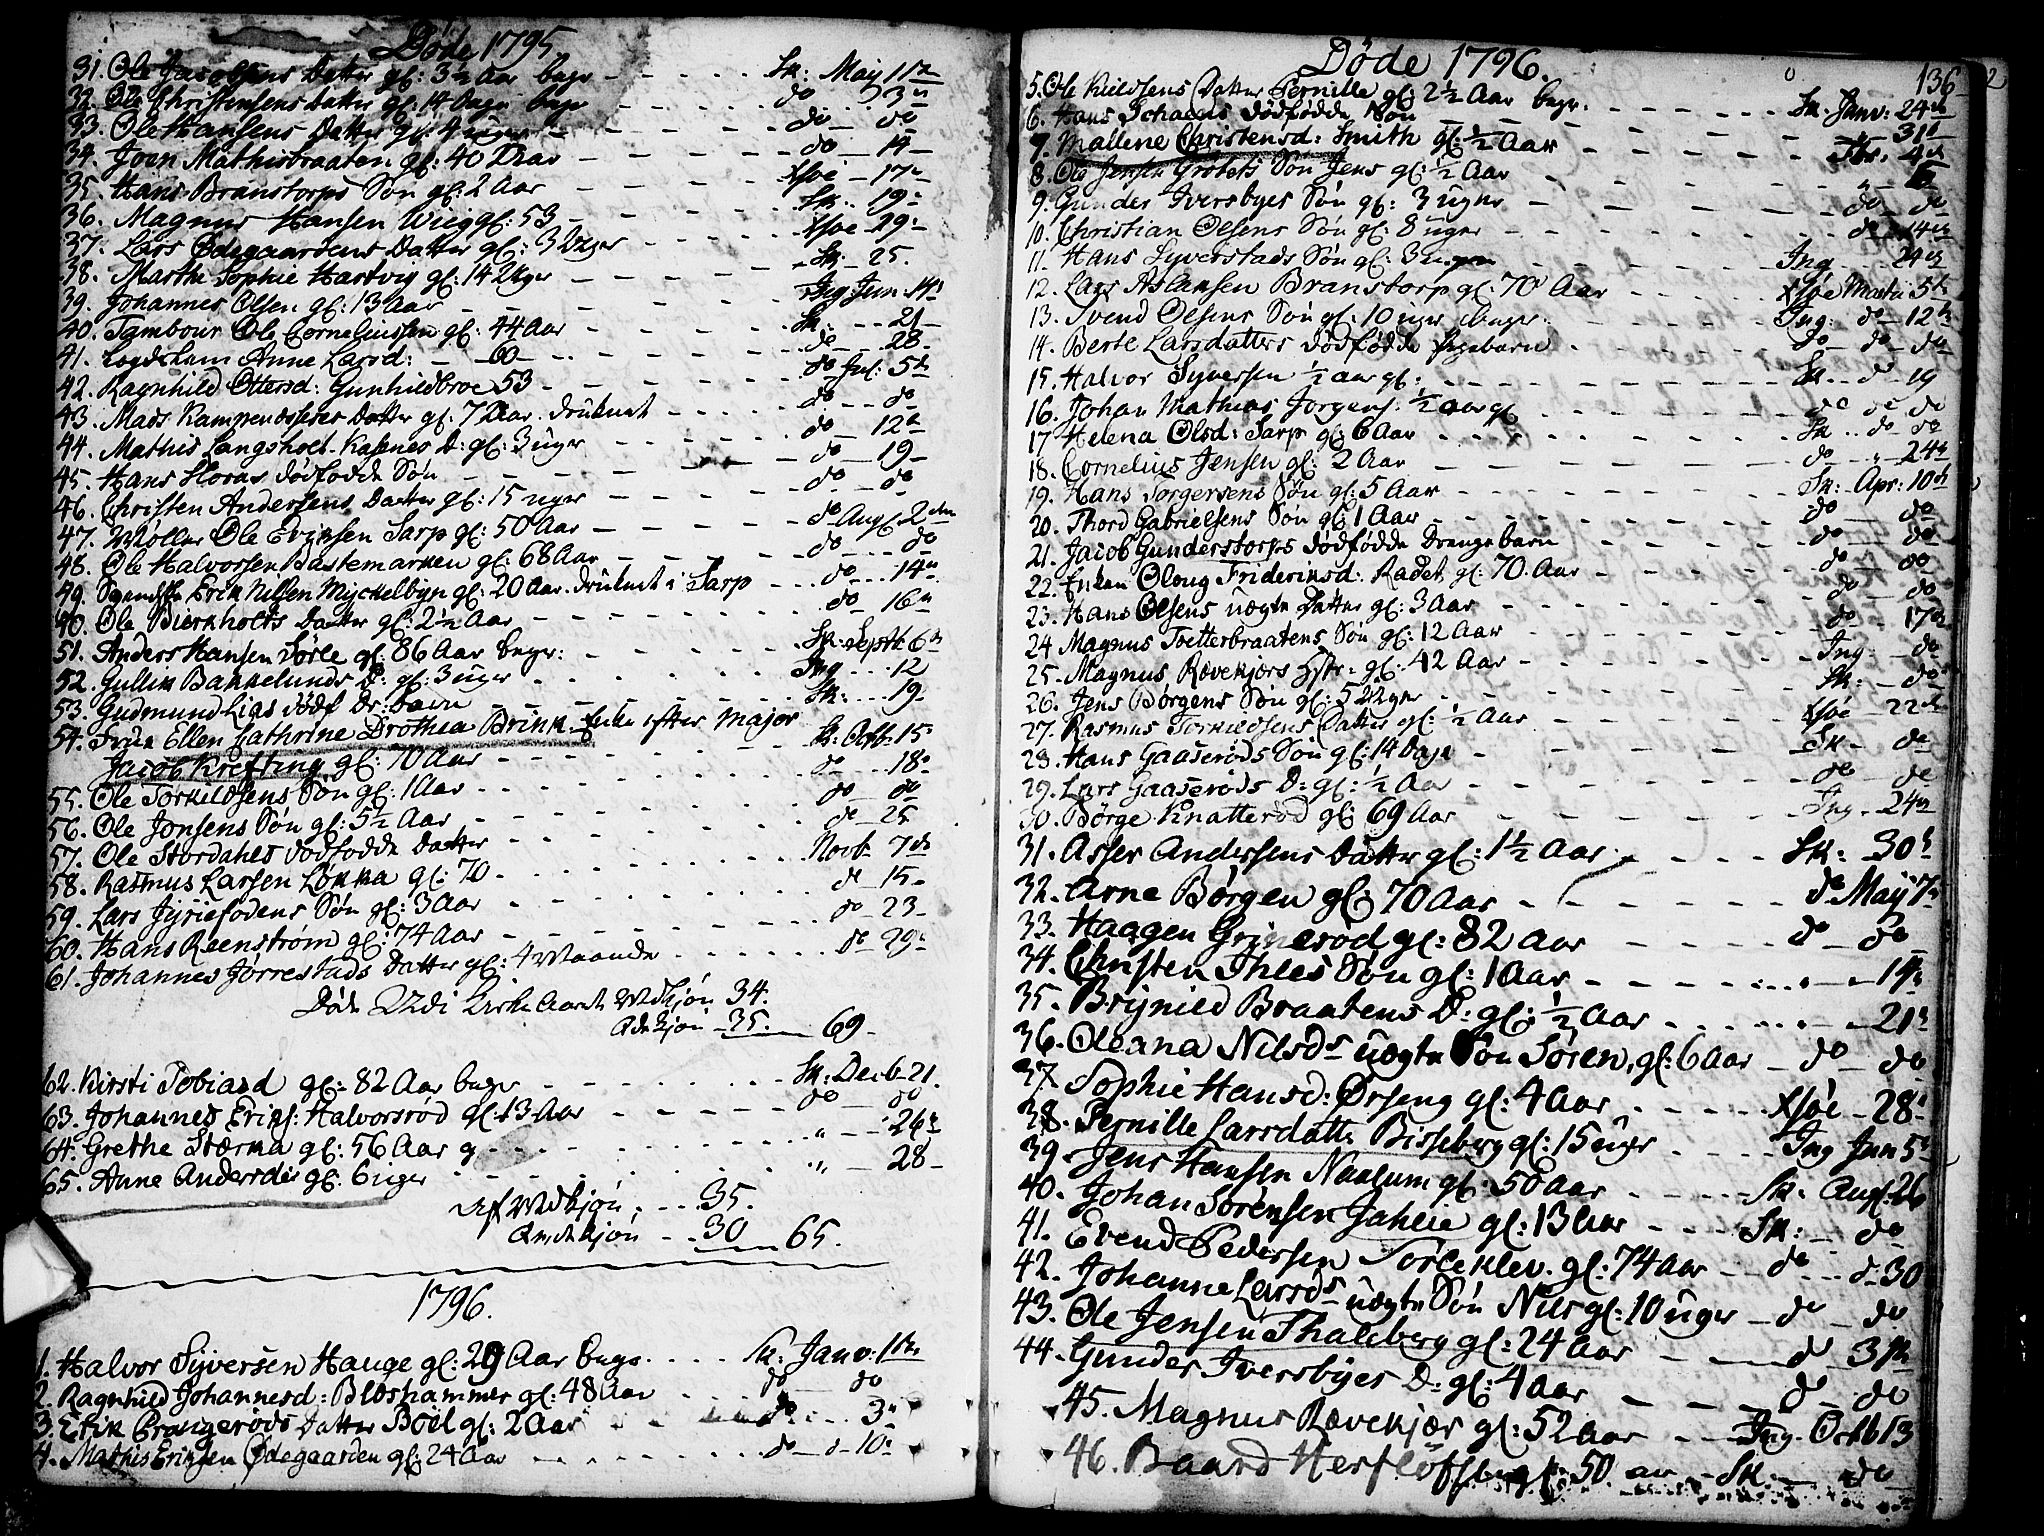 Døde 1795.
31. Ole Jacobsens Datter gl: 3½ Aar begr - Sk: May 11te
32. Ole Christensens Datter gl: 14 Dage begr do
33. Ole Hansens Datter gl: 4 uger do do
34. Joen Mathisbraaten gl: 40 Aar do 14
35. Hans Branstorps Søn gl: 2 Aar 17
36. Magnus Hansen Wiig gl: 53 Sk 19
37. Lars Ødegaardens Datter gl: 3 Uger 29
38. Marthe Sophie Hartvig gl: 14 Uger Sk 25.
39. Johannes Olsen gl: 13 Aar Ing Jun: 14
40. Tambour Ole Corneliussen gl: 44 Aar Sk: 21
41. Logdslem Anne Larsd: 60 do 28
42. Ragnhild Ottersd: Gunhildbroe 53 do Jul: 5te
43. Mads Kampenæsseies Datter gl: 7 Aar druknet do do
44. Mathis Langsholt Kasnes D: gl: 3 uger do 12te
45. Hans Horas dødfødde Søn do 19
46. Christen Andersens Datter gl: 15 uger do do
47. Møller Ole Erichsen Sarp gl: 50 Aar do Aug 2den
48. Ole Halvorsen Bastemarken gl: 68 Aar do do
49. Erik Nilsen Myckelbye gl: 20 Aar druknet i Sarp do 14
40. Ole Bierkholts Datter gl: 2½ Aar do 16
51. Anders Hansen Sørle gl: 86 Aar begr: Sk: Septb 6te
52. Gullik Bakkelunds D: gl: 3 uger Ing 12
53. Gudmund Lias dødf Dr: barn Sk: 19
54. Frue Ellen Cathrine Drothea Brink Enke efter Major
Jacob Krefting gl: 70 Aar Sk: Octb: 15
55. Ole Torkildsens Søn gl: 1 Aar do 18
56. Ole Jonsens Søn gl: 5½ Aar do do
57. Ole Stordahls dødfødde Datter do 25
58. Rasmus Larsen Løkka gl: 70 Novb 7de
59. Lars Jyriefodens Søn gl: 3 Aar do 15
60. Hans Roenstrøm gl: 74 Aar do 23
61. Johannes Jørrestads Datter gl: 4 Maande do 29
Døde Udi Kirke Aaret Mdkjøn 34.
Qdekjøn 35. 69
62. Kirsti Tobiasd gl: 82 Aar begr Sk: Decb 21.
63. Johannes Erikf: Halvorsrød gl: 13 Aar do do
64. Grethe Stærma gl: 56 Aar " 26
65. Anne Andersdr gl: 6 uger " 28
Af Mdkjøn 35.
Qndekjøn 30 65.
1796.
1. Halvor Syversen Hauge gl: 29 Aar begr. Sk: Janv: 1te
2. Ragnhild Johannesd: Blæshammer gl: 48 Aar do do
3. Erik Prangerøds Datter Boel gl: 2 Aar do 3
4. Mathis Eriksen Ødegaarden gl: 24 Aar do d 10
Døde 1796.
136
5. Ole Kieldsens Datter Pernille gl: 2½ Aar begr. Sk: Janv: 24de
6. Hans Schaens dødfødde Søn 31
7. Mallene Christensd: Smith gl: ½ Aar
8. Ole Jensen Grotets Søn Jens gl: ½ Aar
9. Gunder Iversbyes Søn gl: 3 uger do do
10. Christian Olsens Søn gl: 8 uger do 14de
11. Hans Syverstads Søn gl: 3 uger Ing 24
12. Lars Aslaksen Branstorp gl: 70 Aar Martii 5te
13. Svend Olsens Søn gl: 10 uger begr. Ing: do 12te
14. Berte Larsdatters dødfødde Pigebarn do do do
15. Halvor Syversen ½ aar gl: Sk d 19
16. Johan Mathias Jorgens: ½ aar gl do do do
17. Helena Olsd: Sarp gl: 6 Aar Sk do do
18. Cornelius Jensen gl: 2 Aar do " 24
19. Hans Jørgensens Søn gl: 5 Aar Sk: Apr: 10de
20. Thord Gabrielsens Søn gl: 1 Aar do do
21. Jacob Gunderstorps dødfødde Drengebarn do do
22. Enken Oloug Frideriksd: Radet gl: 70 Aar do do
23. Hans Olsens uægte Datter gl: 3 Aar do do
24. Magnus Tvetterbraatens Søn gl: 12 Aar do 17de
25. Magnus Rævekjærs Hstr: gl: 42 Aar Ing do
26. Jens Børgens Søn gl: 5 Uger Sk: do
27. Rasmus Torkildsens Datter gl: ½ Aar 22
28. Hans Gaaserøds Søn gl: 14 Dage Sk do
29. Lars Gaaserøds D: gl: ½ Aar do do
30. Børge Knatterød gl: 69 Aar Ing 24
31. Asser Andersens Datter gl: 1½ Aar Sk: 30
32. Arne Børgen gl: 70 Aar do May 7
33. Haagen Grinerød gl: 82 Aar do do
34. Christen Ihles Søn gl: 1 Aar 14
35. Brynild Braatens D: gl: ½ Aar 21
36. Oleana Nilsds uægte Søn Søren, gl: 6 Aar do do
37. Sophie Hansd: Ørseng gl: 4 Aar 28
38. Pernille Larsdatter Bisseberg gl: 15 uger Ing Jun 5
39. Jens Hansen Naalum gl: 50 Aar Sk: Aug: 26
40. Johan Sørensen Jahlie gl: 13 Aar Sk: do
41. Evend Pedersen Torleklev gl: 74 Aar do d 30
42. Johanne Larsds uægte Søn Nils gl: 10 uger do do
43. Ole Jensen Thaleberg gl: 24 Aar d 31te
44. Gunder Iversbyes D: gl: 4 Aar do do
45. Magnus Rævekjær gl: 52 Aar Ing. Octb 13
46. Baard Herfløfs gl: 50 aar Sk do